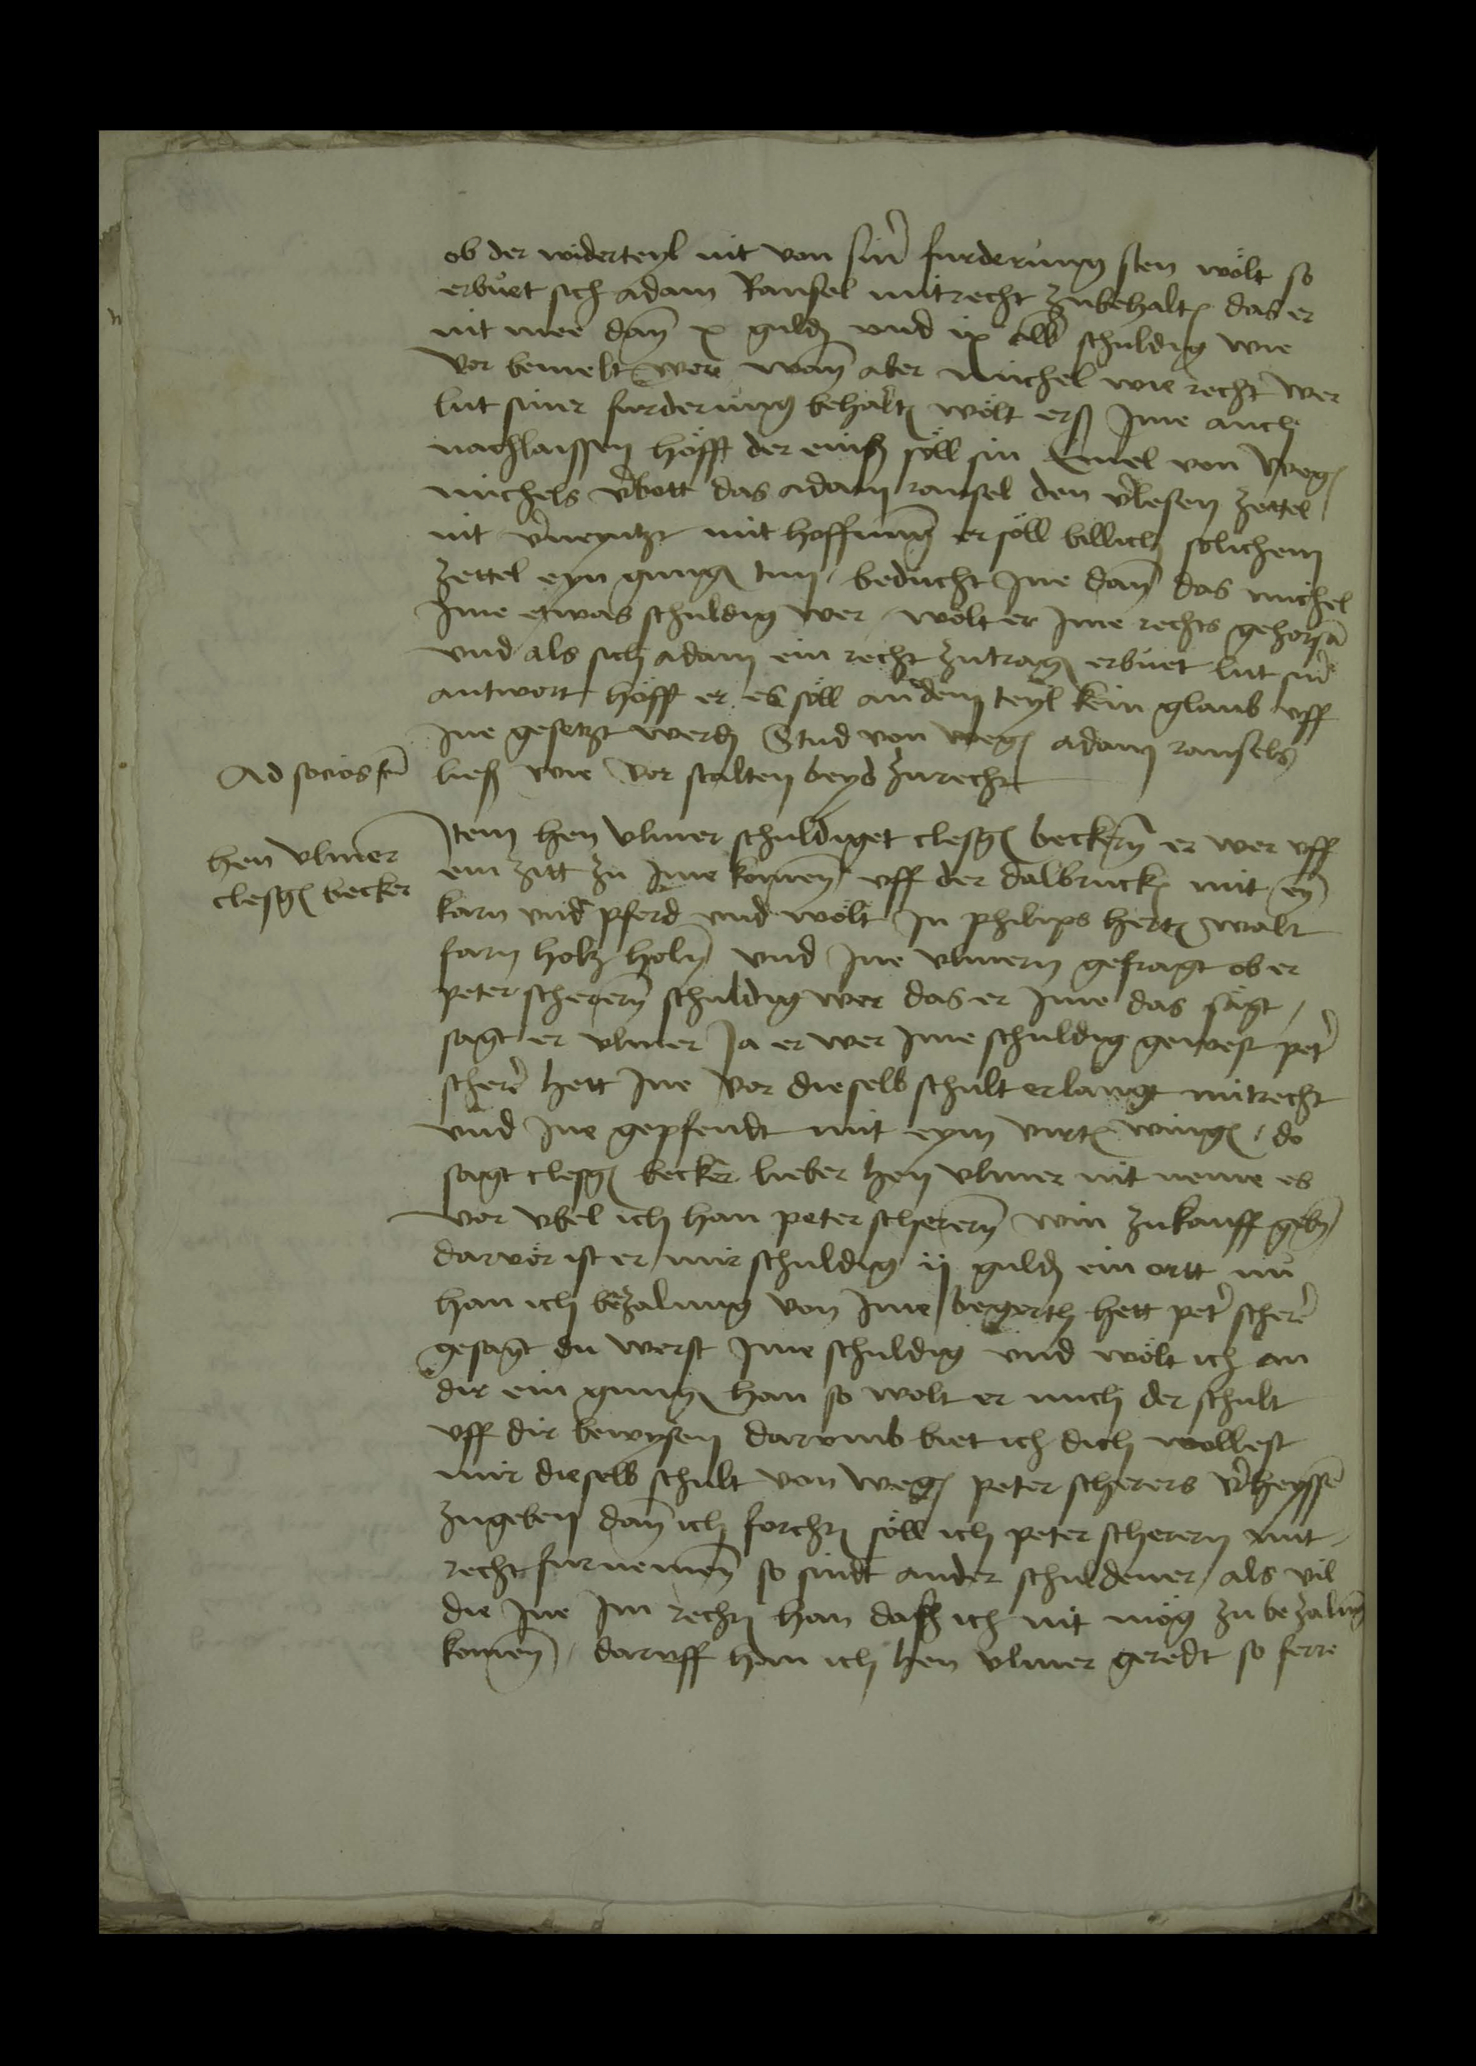 ob der widerteyl nit von sin' furderung sten wolt so
erbuet sich adam Ransel mitrecht zubehalt(en) das er
nit mee dan x guld(en) und ix alb schuldig wie
vor bemelt were wan aber michel wie recht wer
lut siner furderung behalt(en) wolt ers Ime auch
nachlaissen hofft der eins soll sin Emel von weg(en)
michels v'bott das adam ransel den v'lesen zettel
nit v'neyntzt mit hoffnung er soll billich solichem
zettel eyn gnug(en) tun / beducht Ine dan das michel
Ime etwas schuldig wer wolt er Ime rechts gehorsa(m)
und als sich adam ein recht zutrag(en) erbuet lut sin'
antwort hofft er es soll an dem teyl kein glaub uff
Ine gesetzt werd(en) Stud von weg(en) adam ransels
Ad socios
ließ wie vor stalten beyd zurecht
hen ulmer
clesg(in) becker
Item hen ulmer schuldiget clesg(in) beckern er wer uff
ein zitt zu Ime komen uff der dalbruck(en) mit ey(m)
karn und pferd und wolt In philips hert(en) walt
farn holtz holn und Ine ulmern gefragt ob er
peter scherern schuldig wer das er Ime das sagt /
sagt er ulmer Ja er wer Ime schuldig gewest pet'
scher' hett Ine vor dieselb schult erlangt mitrecht
und Ine gepfendt mit eym virt(el) wing(art) / do
sagt clesg(in) becker lieber hen ulmer nit neme es
vor ubel ich han peter scherern win zukauff geb(en)
darvor ist er mir schuldig ij guld(en) ein ortt nu
han ich bezalung von Ime begerth hett pet' scher'
gesagt du werst Ime schuldig und wolt ich an
dir ein gnug(en) han so wolt er mich der schult
uff dir bewysen darumb biet ich dich wollest
mir dieselb schult von weg(en) peter scherers v'heysse(n)
zugeben dan ich forcht soll ich peter scherern mit
recht furnemen so sindt ander schuldener / als vil
die Ine Im recht(en) han dass ich nit mog zu bezalu(n)g
komen / daruff han ich hen ulmer geredt so ferre